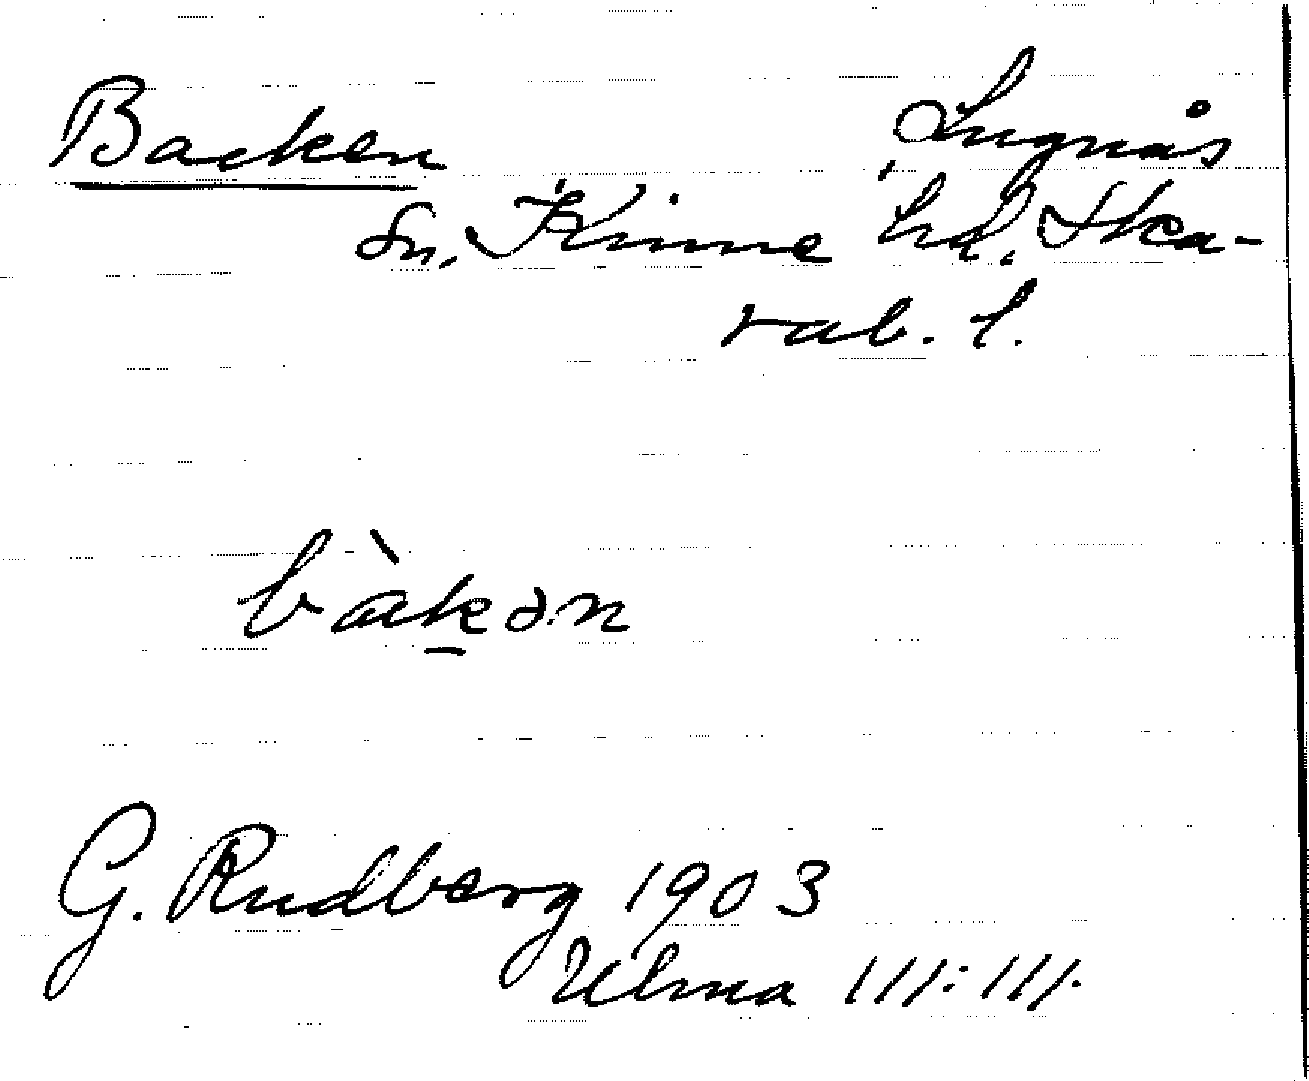 Backen Lugnås
Sn. Kinne hd. Ska-
rab. l.
bàk̲ən
G. Rudberg 1903
Ulma 111:111.